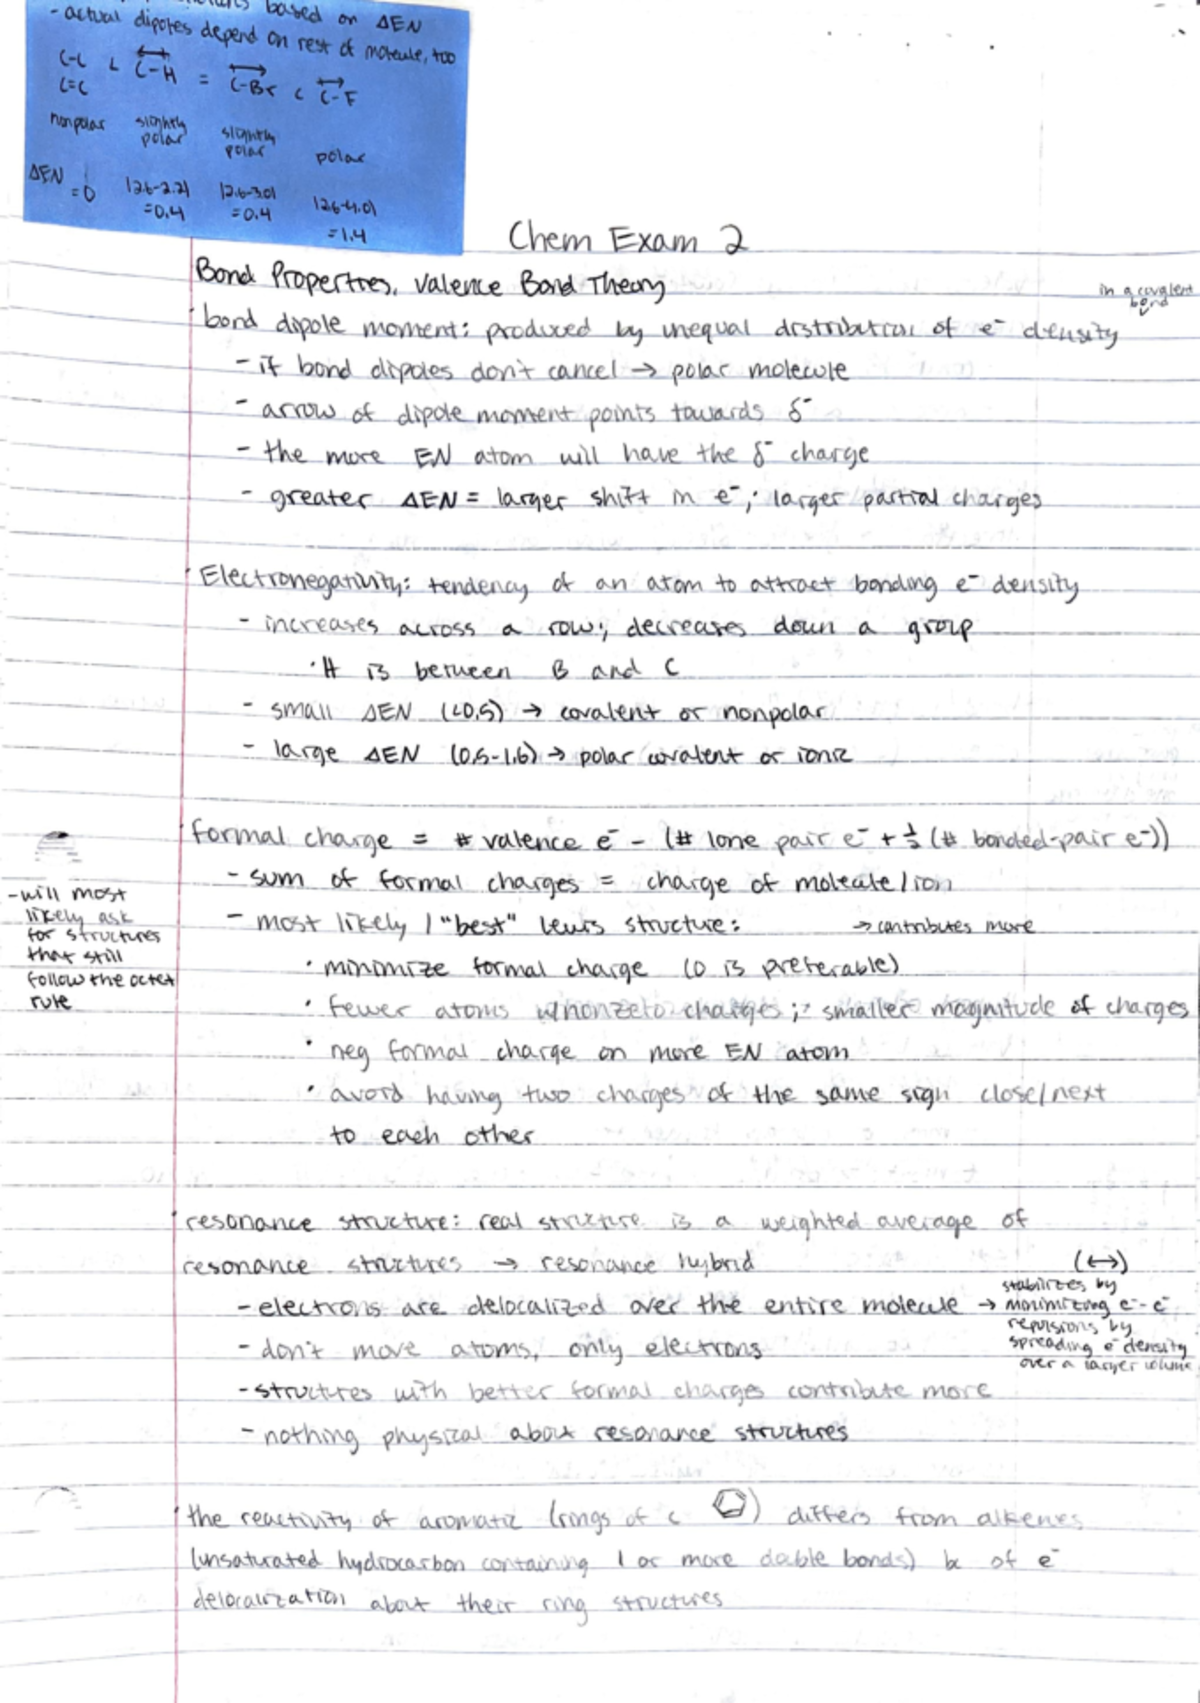 based on ΔEN
- actual dipoles depend on rest of molecule, too
C-C < C-H = C-Br < C-F
C=C
nonpolar slightly polar slightly polar polar
ΔEN =0 |2.6-2.2| =0.4 |2.6-3.0| =0.4 |2.6-4.0| =1.4
Chem Exam 2
Bond Properties, Valence Bond Theory
in a covalent bond
bond dipole moment: produced by unequal distribution of e⁻ density
- if bond dipoles don't cancel → polar molecule
- arrow of dipole moment points towards δ⁻
- the more EN atom will have the δ⁻ charge
- greater ΔEN = larger shift in e⁻; larger partial charges
Electronegativity: tendency of an atom to attract bonding e⁻ density
- increases across a row; decreases down a group
· H is between B and C
- small ΔEN (<0.5) → covalent or nonpolar
- large ΔEN (0.5-1.6) → polar covalent or ionic
formal charge = # valence e⁻ - (# lone pair e⁻ + ½ (# bonded-pair e⁻))
- sum of formal charges = charge of molecule/ion
- most likely / "best" lewis structure: → contributes more
· minimize formal charge (0 is preferable)
· fewer atoms w/nonzero charges; smaller magnitude of charges
· neg formal charge on more EN atom
· avoid having two charges of the same sign close/next
to each other
- will most
likely ask
for structures
that still
follow the octet
rule
resonance structure: real structure is a weighted average of
resonance structures → resonance hybrid (↔)
- electrons are delocalized over the entire molecule → stabilizes by
minimizing e⁻-e⁻
repulsions by
spreading e⁻ density
over a larger volume
- don't move atoms, only electrons
- structures with better formal charges contribute more
- nothing physical about resonance structures
· the reactivity of aromatic (rings of c ) differs from alkenes
(unsaturated hydrocarbon containing 1 or more double bonds) bc of e⁻
delocalization about their ring structures